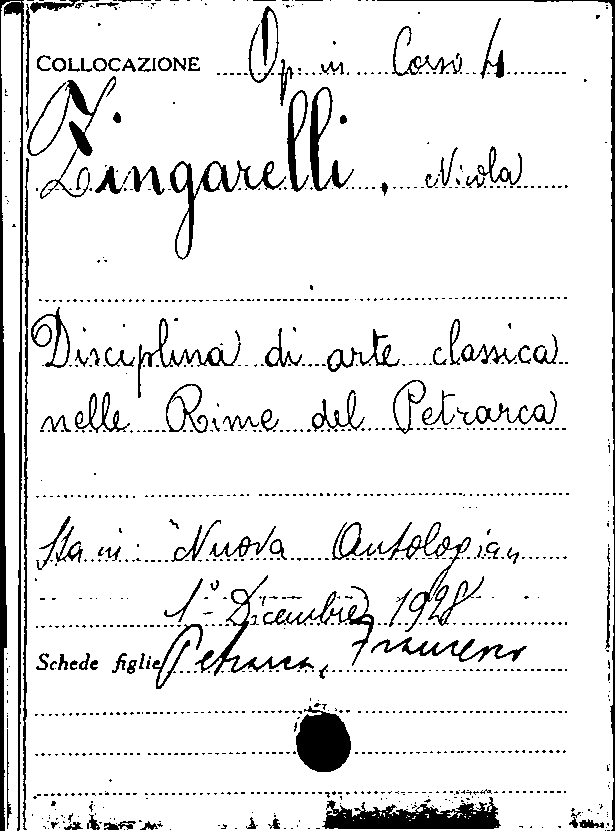 COLLOCAZIONE Op. in Corso 4
Zingarelli, Nicola
Disciplina di arte classica
nelle Rime del Petrarca
Sta in: "Nuova Antologia"
1º Dicembre 1928
Schede figlie Petrarca, Francesco